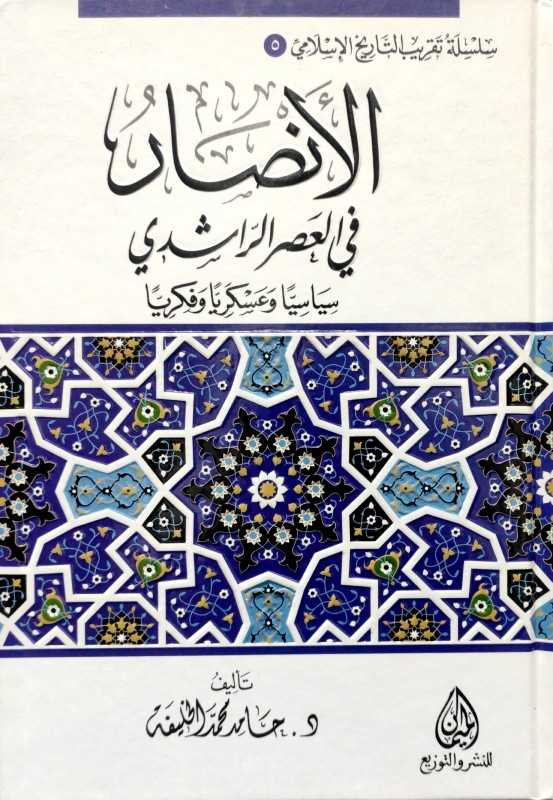 سِلْسِلَةُ تَقْرِيبِ التَّارِيخِ الإِسْلَامِيِّ ٥
الأَنصَارُ
فِي العَصْرِ الرَّاشِدِي
سِيَاسِيًّا وَعَسْكَرِيًّا وَفِكْرِيًّا
تَأْلِيفُ
د. حامد محمد الخليفة
الميمان
للنشر والتوزيع